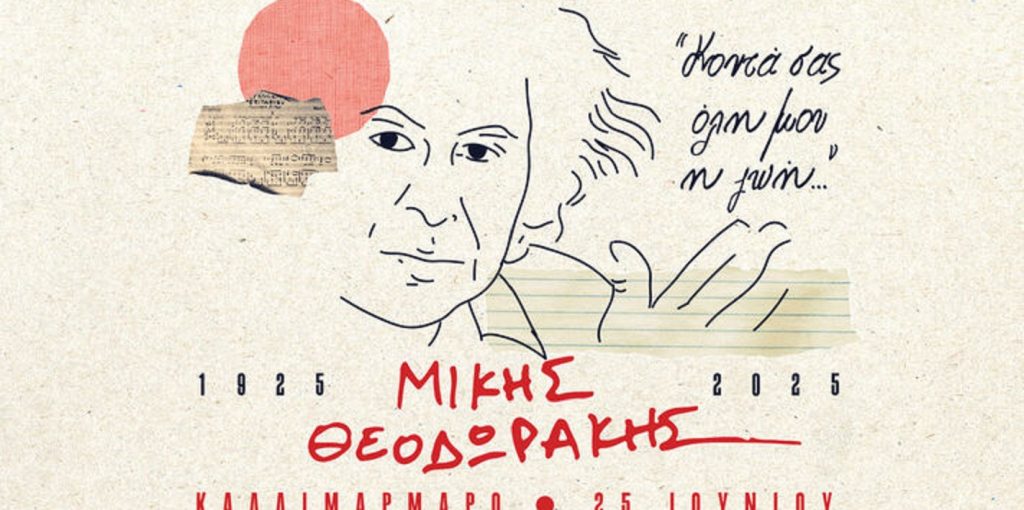 "Κοντά σας
όλη μου
η ζωή..."
1925 ΜΙΚΗΣ 2025
ΘΕΟΔΩΡΑΚΗΣ
ΚΑΛΛΙΜΑΡΜΑΡΟ • 25 ΙΟΥΝΙΟΥ